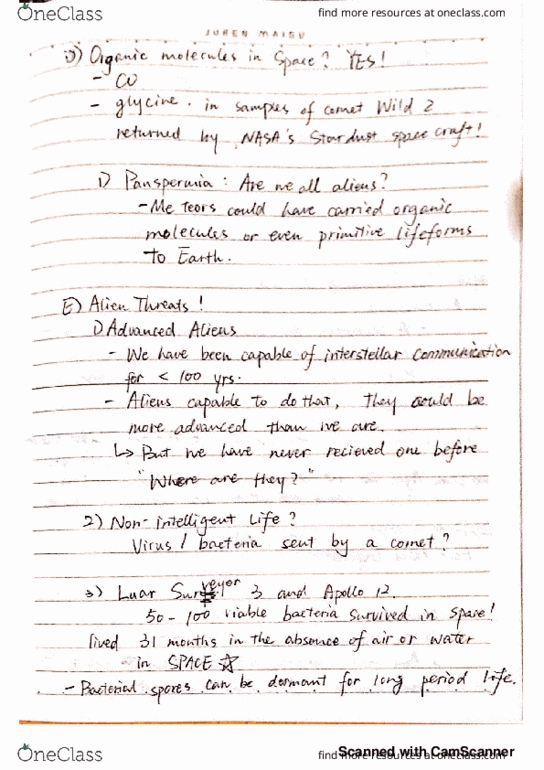 OneClass
find more resources at oneclass.com
D) Organic molecules in Space? YES!
- CO
- glycine. in samples of comet Wild 2
returned by NASA's Stardust space craft!
1) Panspermia: Are we all aliens?
- Me teors could have carried organic
molecules or even primitive lifeforms
to Earth.
E) Alien Threats!
1) Advanced Aliens
- We have been capable of interstellar communication
for < 100 yrs.
- Aliens capable to do that, they would be
more advanced than we are.
↳ But we have never recieved one before
"Where are they?"
2) Non-intelligent Life?
Virus / bacteria sent by a comet?
3) Luar Surveyor 3 and Apollo 12.
50-100 viable bacteria survived in space!
lived 31 months in the absence of air or water
in SPACE ☆
- Bacterial spores can be dormant for long period life.
OneClass
find more resources at oneclass.com
Scanned with CamScanner